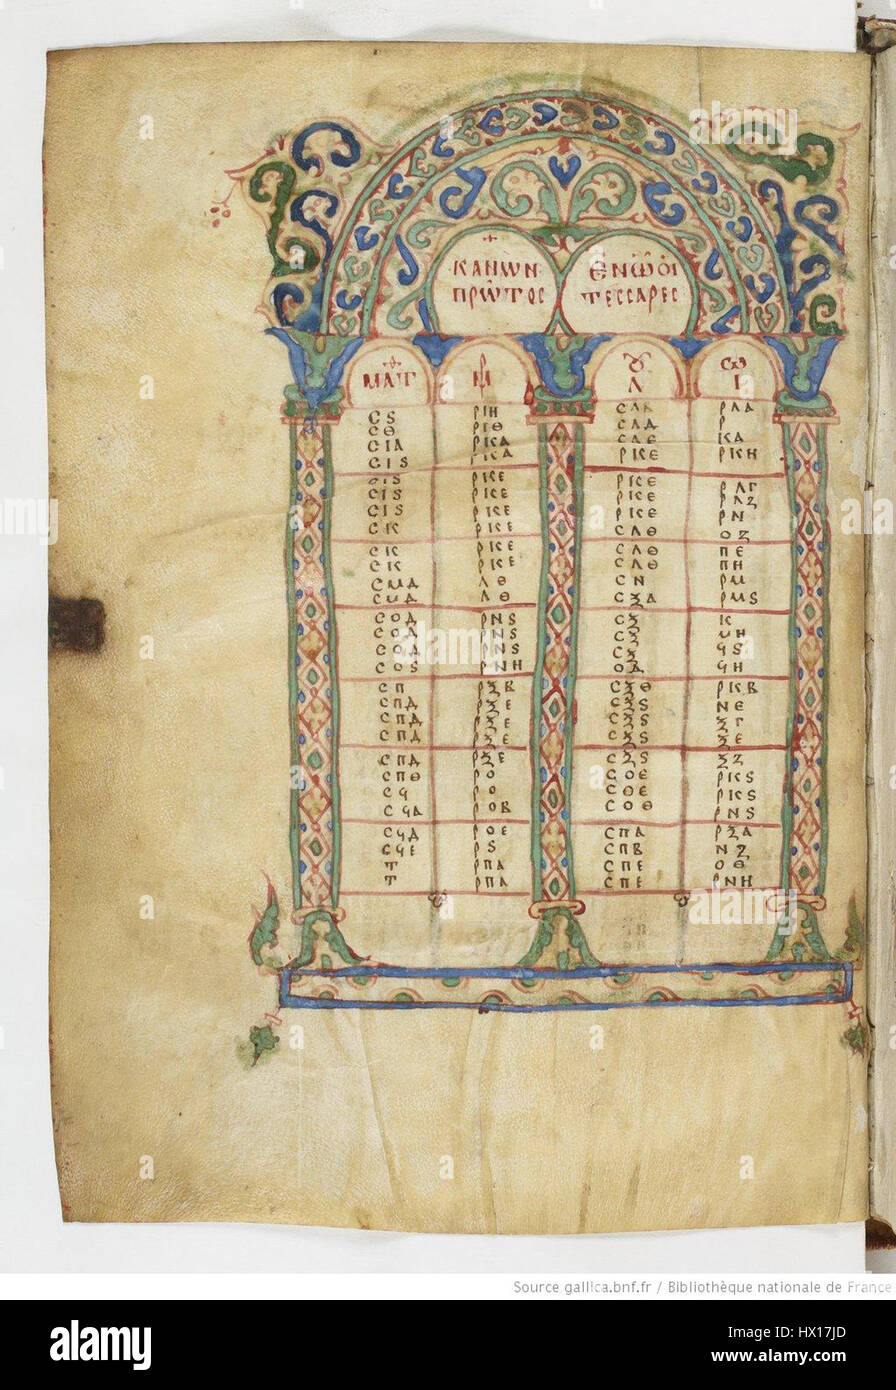 ΚΑΝΩΝ
ΠΡΩΤΟϹ
ΕΝ Ω ΟΙ
ΤΕϹϹΑΡΕϹ
ΜΑΤΘ ΜΡ ΛΟΥ ΙΩ
ϹϚ ΡΙΗ ΡΛΑ
ϹΘ ΡΙΘ ϹΛΔ Ρ
ϹΙΑ ΡΚΑ ϹΛΕ ΚΑ
ϹΙϚ ΡΚΑ ΡΚΕ ΡΚΗ
ϹΙϚ ΡΚΕ ΡΚΕ ΡΛΓ
ϹΙϚ ΡΚΕ ΡΚΕ ΡΛΖ
ϹΙϚ ΡΚΕ ΡΚΕ ΡΝ
ϹΚ ΡΚΕ ϹΛΘ ΟΖ
ϹΚ ΡΚΕ ϹΛΘ ΠΕ
ϹΚ ΡΚΕ ϹΛΘ ΠΗ
ϹΜΔ ΡΛΘ ϹΝ ΡΜ
ϹΜΔ ΛΘ ϹΞΑ ΡΜϚ
ϹΟΔ ΡΝϚ ϹΞ Κ
ϹΟΔ ΡΝϚ ϹΞ ΜΗ
ϹΟΔ ΡΝϚ ϹΞ ϤϚ
ϹΟϚ ΡΝΗ ΟΔ ϤΗ
ϹΠ ΡΞΒ ϹΞΘ ΡΚΒ
ϹΠΔ ΡΞΕ ϹΞϚ ΝΕ
ϹΠΔ ΡΞΕ ϹΞϚ ΞΓ
ϹΠΔ ΡΞΕ ϹΞϚ ΞΕ
ϹΠΔ ΡΞΕ ϹΞϚ ΞΖ
ϹΠΘ ΡΟ ϹΟΕ ΡΚϚ
ϹϤ ΡΟ ϹΘΕ ΡΚϚ
ϹϤΑ ΡΟΒ ϹΟΘ ΡΝϚ
ϹϤΔ ΡΟΕ ϹΠΑ ΡΞΑ
ϹϤΕ ΡϚ ϹΠΒ ΝΖ
Τ ΡΠΑ ϹΠΕ ΟΘ
Τ ΡΠΑ ϹΠΕ ΡΝΗ
Source gallica.bnf.fr / Bibliothèque nationale de France
alamy
HX17JD
www.alamy.com